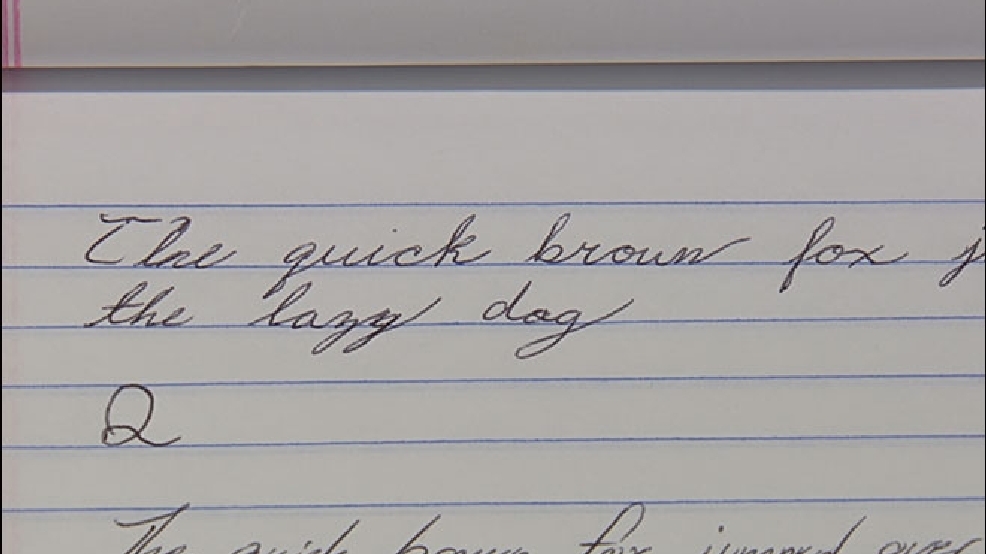 The quick brown fox j
the lazy dog
Q
The quick brown fox jumped over